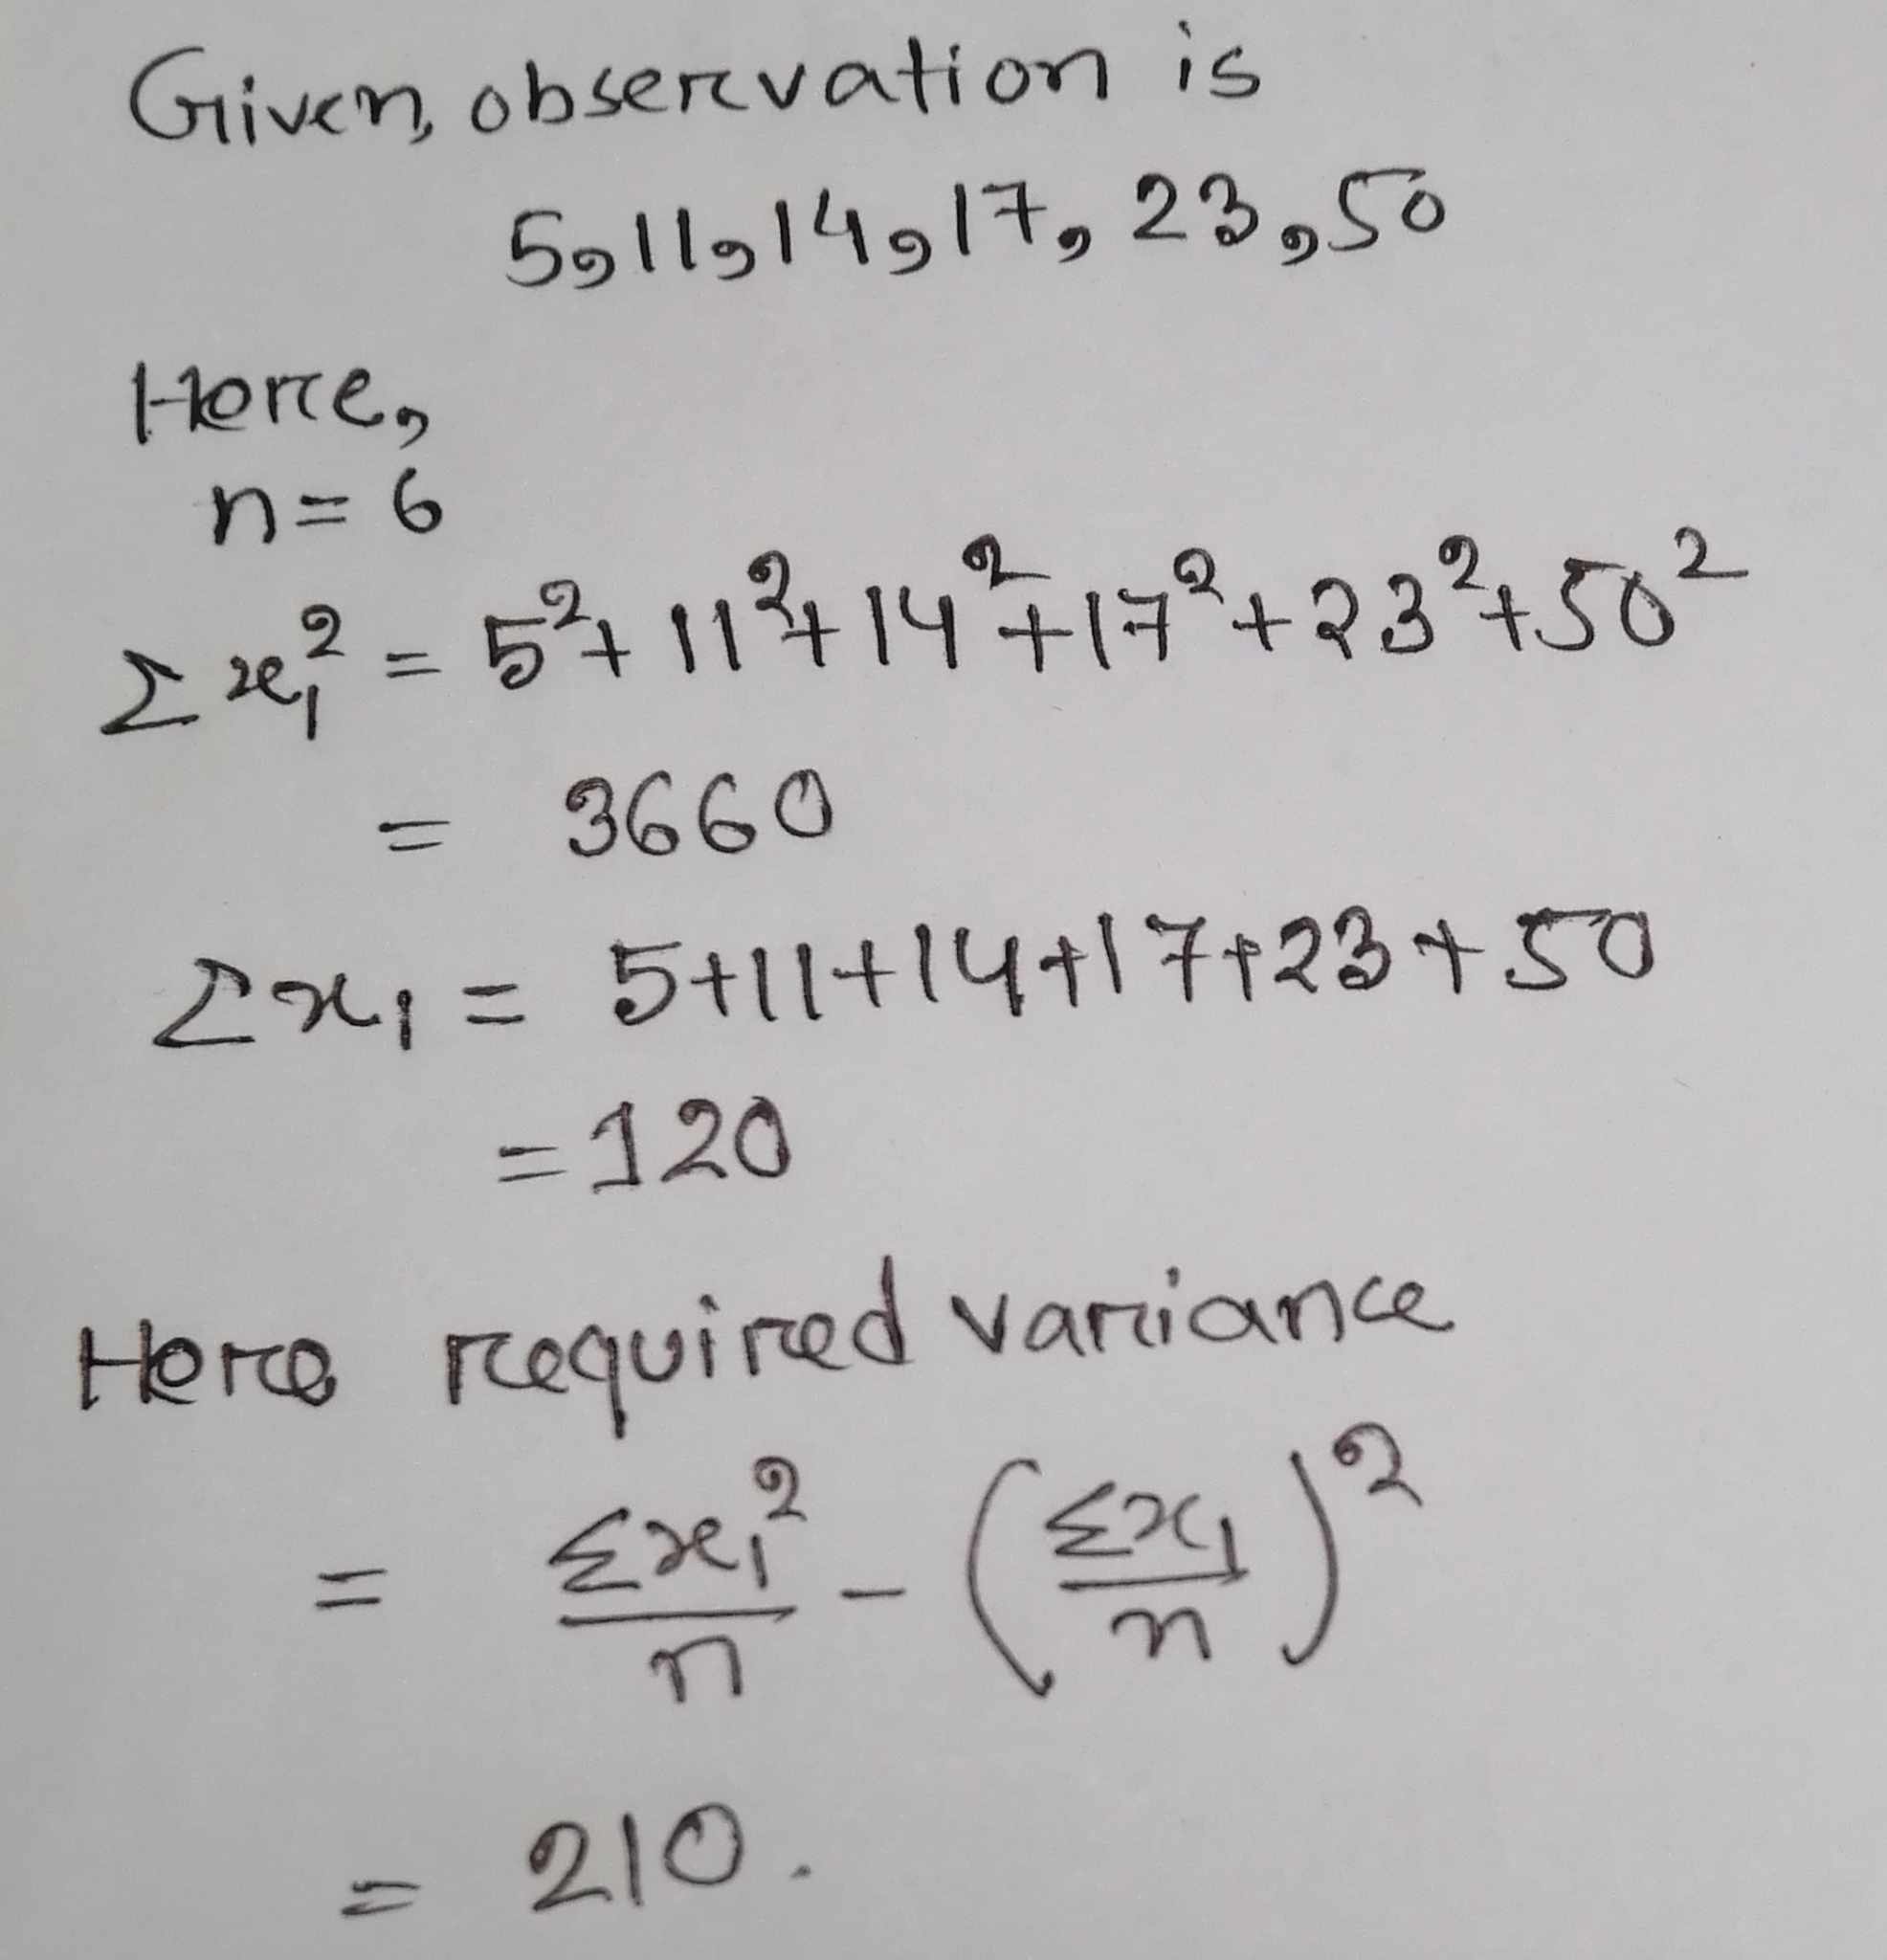 Given, observation is
5, 11, 14, 17, 23, 50
Here,
n = 6
Σx₁² = 5² + 11² + 14² + 17² + 23² + 50²
= 3660
Σx₁ = 5+11+14+17+23+50
= 120
Here required variance
= Σx₁²/n - (Σx₁/n)²
= 210.